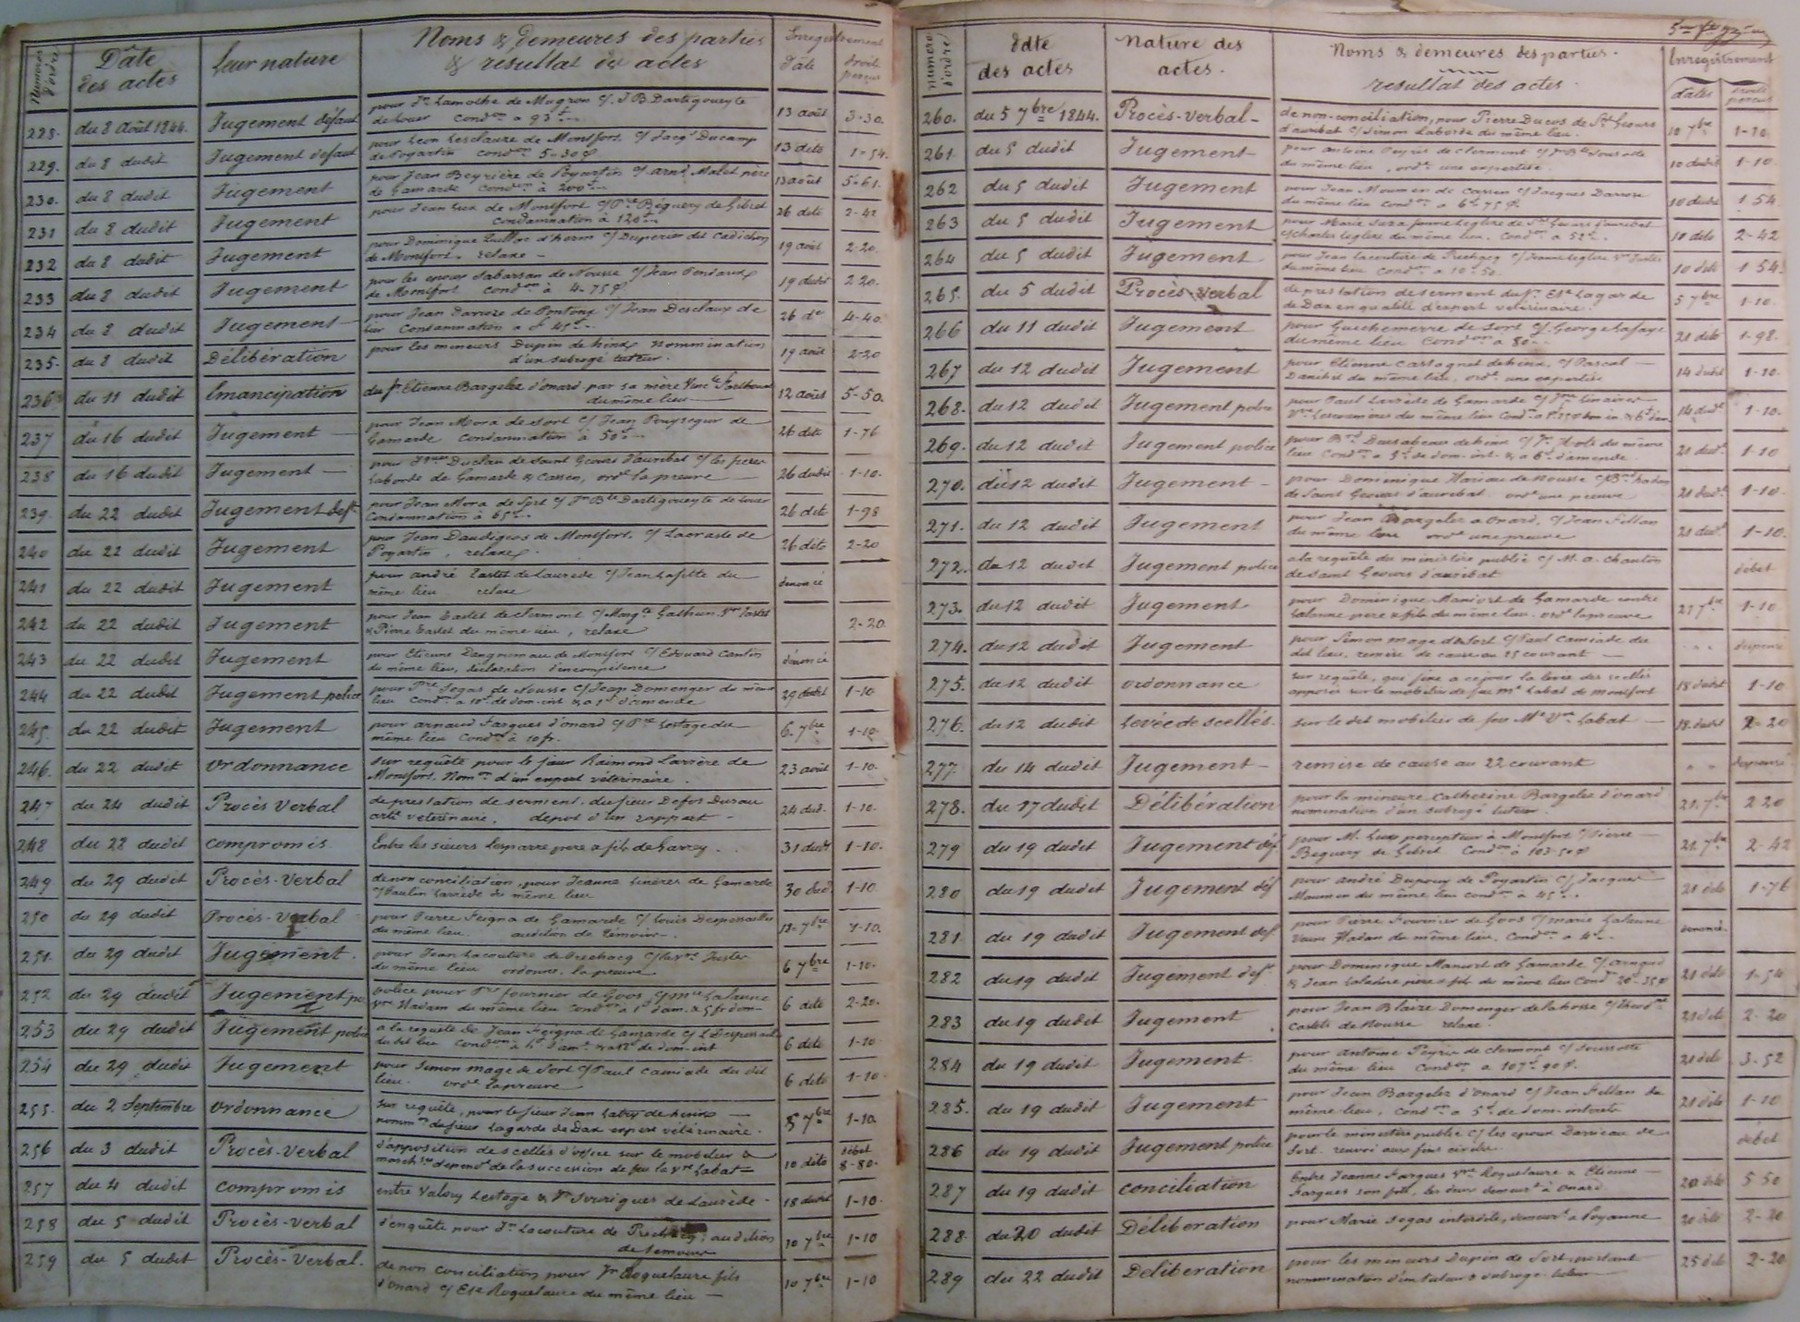 Numéros d'ordre
Dâte des actes
leur nature
Noms & demeures des parties
& résultat des actes
Enregistrement
dâte
droit perçus
228. du 8 août 1844. Jugement défaut pour Jn Lamothe de Mugron c/ J B Dartigoueyte
de Louer Condon à 93 f 13 août 3-30.
229. du 8 dudit Jugement défaut pour Léon Lesclaure de Montfort c/ Jacqs Ducamp
de Poyartin Condon 5-30 13 dito 1-54.
230. du 8 dudit Jugement pour Jean Beyrière de Poyartin c/ arnd Malet père
de Gamarde Condon à 200 f 13 août 5-61.
231 du 8 dudit Jugement pour Jean Lux de Montfort c/ Pre Béguery de Gibret
Condamnation à 120 f 26 dito 2-42
232 du 8 dudit Jugement pour Dominique d'herm c/ Duperier dit Cadichon
de Montfort. relaxe - 19 août 2-20.
233 du 8 dudit Jugement pour les époux Labarsan de Nousse c/ Jean
de Montfort Condon à 4-75 19 dudit 2 20.
234 du 8 dudit Jugement pour Jean Darroze de Pontonx c/ Jean Desclaux de
Condamnation à 26 do 4-40.
235. du 8 dudit Délibération pour les mineurs Dupin de hinx nommination
d'un subrogé tuteur. 19 août 2-20
236 du 11 dudit Emancipation du Sr Etienne Bargelez d'onard par sa mère
du même lieu 12 août 5-50.
237 du 16 dudit Jugement pour Jean Mora de Sort c/ Jean Pouysegur de
Gamarde Condamnation à 50 f 26 dito 1-76
238 du 16 dudit Jugement pour Duclau de Saint Geours d'auribat c/ les frères
Laborde de Gamarde & Cassen, ordt la preuve 26 dudit 1-10.
239. du 22 dudit Jugement deft pour Jean Mora de Sort c/ Jn Bte Dartigoueyte de Louer
Condamnation à 65 f 26 dito 1-98
240 du 22 dudit Jugement pour Jean Daudigeos de Montfort. c/ Lacraste de
Poyartin, relaxe. 26 dito 2-20
241 du 22 dudit Jugement pour andré Tastet de Laurède c/ Jean Lafitte du
même lieu relaxe dénoncé
242 du 22 dudit Jugement pour Jean Tastet de Clermont c/ Margte Galhun Vve Tastet
& Pierre Tastet du même lieu, relaxe 2-20.
243 du 22 dudit Jugement pour Etienne de Montfort c/ Edouard Cantin
du même lieu, déclaration d'incompétence dénoncé
244 du 22 dudit Jugement police pour Pre Segas de Nousse c/ Jean Domenger du même
lieu Condon à 10 f de dom-int & a 1 f d'amende 29 dudit 1-10
245. du 22 dudit Jugement pour arnaud Fargues d'onard c/ Pre Lestage du
même lieu Condon à 10 fr. 6. 7bre 1-10
246. du 22 dudit ordonnance sur requête pour le sieur Raimond Larrère de
Montfort. Nomon d'un expert vétérinaire. 23 août 1-10.
247 du 24 dudit Procès verbal de prestation de serment. du sieur Defos Durau
arte vétérinaire. dépôt d'un rapport - 24 dud. 1-10.
248 du 28 dudit compromis Entre les sieurs Lesparre père & fils de Garrey. 31 dudt 1-10.
249 du 29 dudit Procès-Verbal de non conciliation, pour Jeanne Linères de Gamarde
c/ Paulin Larrède du même lieu 30 dud. 1-10
250 du 29 dudit Procès-Verbal pour Pierre Feigna de Gamarde c/ Louis Despessailles
du même lieu. audition de témoins-. 13-7bre 1-10.
251. du 29 dudit Jugement. pour Jean Lacouture de Prechacq c/ la Vve Juster
du même lieu ordonne. la preuve 6 7bre 1-10.
252 du 29 dudit Jugement po police pour Pre fournier de Goos c/ Mie Lalanne
Vve Hadam du même lieu Condon à 1 f d'am. & 5 fr dom- 6 dito 2-20.
253 du 29 dudit Jugement police a la requête de Jean Feigna de Gamarde c/ L Despessailles
du dit lieu Condon à 1 f d'am. & a de dom-int 6 dito 1-10
254 du 29 dudit Jugement pour Simon mage de Sort c/ Paul Camiade du dit
lieu. ordt la preuve 6 dito 1-10
255. du 2 Septembre ordonnance sur requête, pour le sieur Jean Labry de hinx
nommon du sieur Lagarde de Dax expert vétérinaire. 5 7bre 1-10.
256 du 3 dudit Procès-Verbal d'apposition de scellés d'office sur le mobilier &
march dépendt de la succession de feu la Vve Labat 10 dito débet 8-80.
257 du 4 dudit compromis entre Valery Lestage & Pre Sourigues de Laurède - 18 dudit 1-10.
258 du 5 dudit Procès-Verbal d'enquête pour Jn Lacouture de Prechacq; audition
de temoins 10 7bre 1-10
259 du 5 dudit Procès-Verbal. de non conciliation pour Jn Roquelaure fils
d'onard c/ Ete Roquelaure du même lieu - 10 7bre 1-10
numéro d'ordre
date
des actes
nature des
actes.
Noms & demeures des parties.
résultat des actes.
Enregistrement
dates
droits perçus
260. du 5 7bre 1844. Procès-verbal - de non-conciliation, pour Pierre Ducos de St Geours
d'auribat c/ Simon Laborde du même lieu. 10 7bre 1-10.
261 du 5 dudit Jugement - pour antoine Peyris de Clermont c/ Jn Bte Sourrotte
du même lieu, ordt une expertise. 10 dudit 1-10
262 du 5 dudit Jugement pour Jean Mounen de Cassen c/ Jacques Darrose
du même lieu Condon à 6 f 75 10 dudit 1 54.
263 du 5 dudit Jugement pour Marie femme Leglize de St Geours d'auribat
c/ charles Leglize du même lieu. Condon à 52 f 10 dito 2-42
264 du 5 dudit Jugement pour Jean Lacouture de Prechacq c/ Jeanne Leglize Vve Juster
du même lieu Condon à 10 f 50 10 dito 1 54.
265. du 5 dudit Procès-verbal de prestation de serment du Sr Ete Lagarde
de Dax en qualité d'expert vétérinaire. 5 7bre 1-10.
266 du 11 dudit Jugement pour Guichemerre de Sort c/ George Lafaye
du même lieu Condon à 80 21 dito 1-98.
267 du 12 dudit Jugement pour Etienne Castagnet de hinx c/ Pascal
du même lieu, ordt une expertise 14 dudit 1-10.
268. du 12 dudit Jugement police pour Paul Larrède de Gamarde c/
du même lieu 14 dudt 1-10.
269. du 12 dudit Jugement police pour Bd de hinx c/ du même
lieu Condon à 5 f de dom. int. & a 6 f d'amende 21 dudt 1-10
270. du 12 dudit Jugement - pour Dominique de Nousse c/ Bnd
de Saint Geours d'auribat ordt une preuve 21 dudt 1-10.
271. du 12 dudit Jugement pour Jean Bargelez a onard. c/ Jean Fillan
du même lieu ordt une preuve 21 dudt 1-10.
272. du 12 dudit Jugement police a la requête du ministère public c/ M. a. Chanton
de Saint Geours d'auribat débet
273. du 12 dudit Jugement pour Dominique Manciort de Gamarde contre
Lalanne père & fils du même lieu. ordt la preuve 21 7bre 1-10.
274. du 12 dudit Jugement pour Simon mage de Sort c/ Paul Camiade du
dit lieu. remise de cause au 25 courant dispensé
275. du 12 dudit ordonnance sur requête, qui fixe a ce jour la levée des scellés
apposés sur le mobilier de feu Me Labat de Montfort 18 dudit 1-10
276. du 12 dudit Levée de scellés. sur le dit mobilier de feu Me Vve Labat 18. dudit 2-20
277. du 14 dudit Jugement - remise de cause au 22 courant dispensé
278. du 17 dudit Délibération pour la mineure Catherine Bargelez d'onard
nomination d'un subrogé tuteur. 21. 7bre 2 20
279 du 19 dudit Jugement déf pour M. Lux percepteur à Montfort c/ Pierre
Béguery de Gibret Condon à 103-50 21 7bre 2-42
280 du 19 dudit Jugement déf pour andré Dupouy de Poyartin c/ Jacques
Mounen du même lieu Condon à 45 f 21 dito 1-76
281. du 19 dudit Jugement def pour Pierre Fournier de Goos c/ marie Lalanne
Veuve Hadam du même lieu. Condon à 4 f dénoncé.
282 du 19 dudit Jugement def. pour Dominique Manciort de Gamarde c/ arnaud
& Jean Lalanne père & fils du même lieu Condon 20-35 21 dito 1-54
283 du 19 dudit Jugement pour Jean Blaize Domenger de Lahosse c/
de Nousse relaxe. 21 dito 2-20
284 du 19 dudit Jugement. pour antoine Peyris de Clermont c/ Sourrotte
du même lieu Condon à 107 f 90 21 dito 3-52
285. du 19 dudit Jugement pour Jean Bargelez d'onard c/ Jean Fillan du
même lieu, Condon à 5 f de dom-intérêts 21 dito 1-10
286 du 19 dudit Jugement police pour le ministère public c/ les époux Darrieau de
Sort. renvoi aux fins civiles. débet
287 du 19 dudit conciliation Entre Jeanne Fargues Vve Roquelaure & Etienne
Fargues son fils, les deux demeurt à Onard. 20 dito 5 50
288. du 20 dudit Déliberation pour Marie Segas interdite, demeurt a Poyanne 20 dito 2-20
289 du 22 dudit Deliberation pour les mineurs Dupin de Sort. portant
nommination d'un tuteur & subrogé tuteur 25 dito 2-20